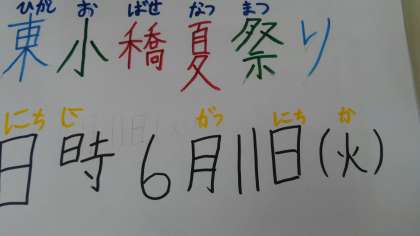 ひがし お ばせ なつ まつ
東小橋夏祭り
にち じ がつ にち か
日時 6月11日(火)